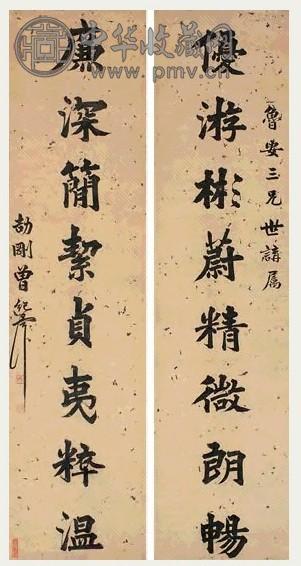 中华收藏网
www.pmv.cn
魯安三兄世講属
優游彬蔚精微朗暢
廉深簡絜貞夷粹温
劼剛曾紀澤